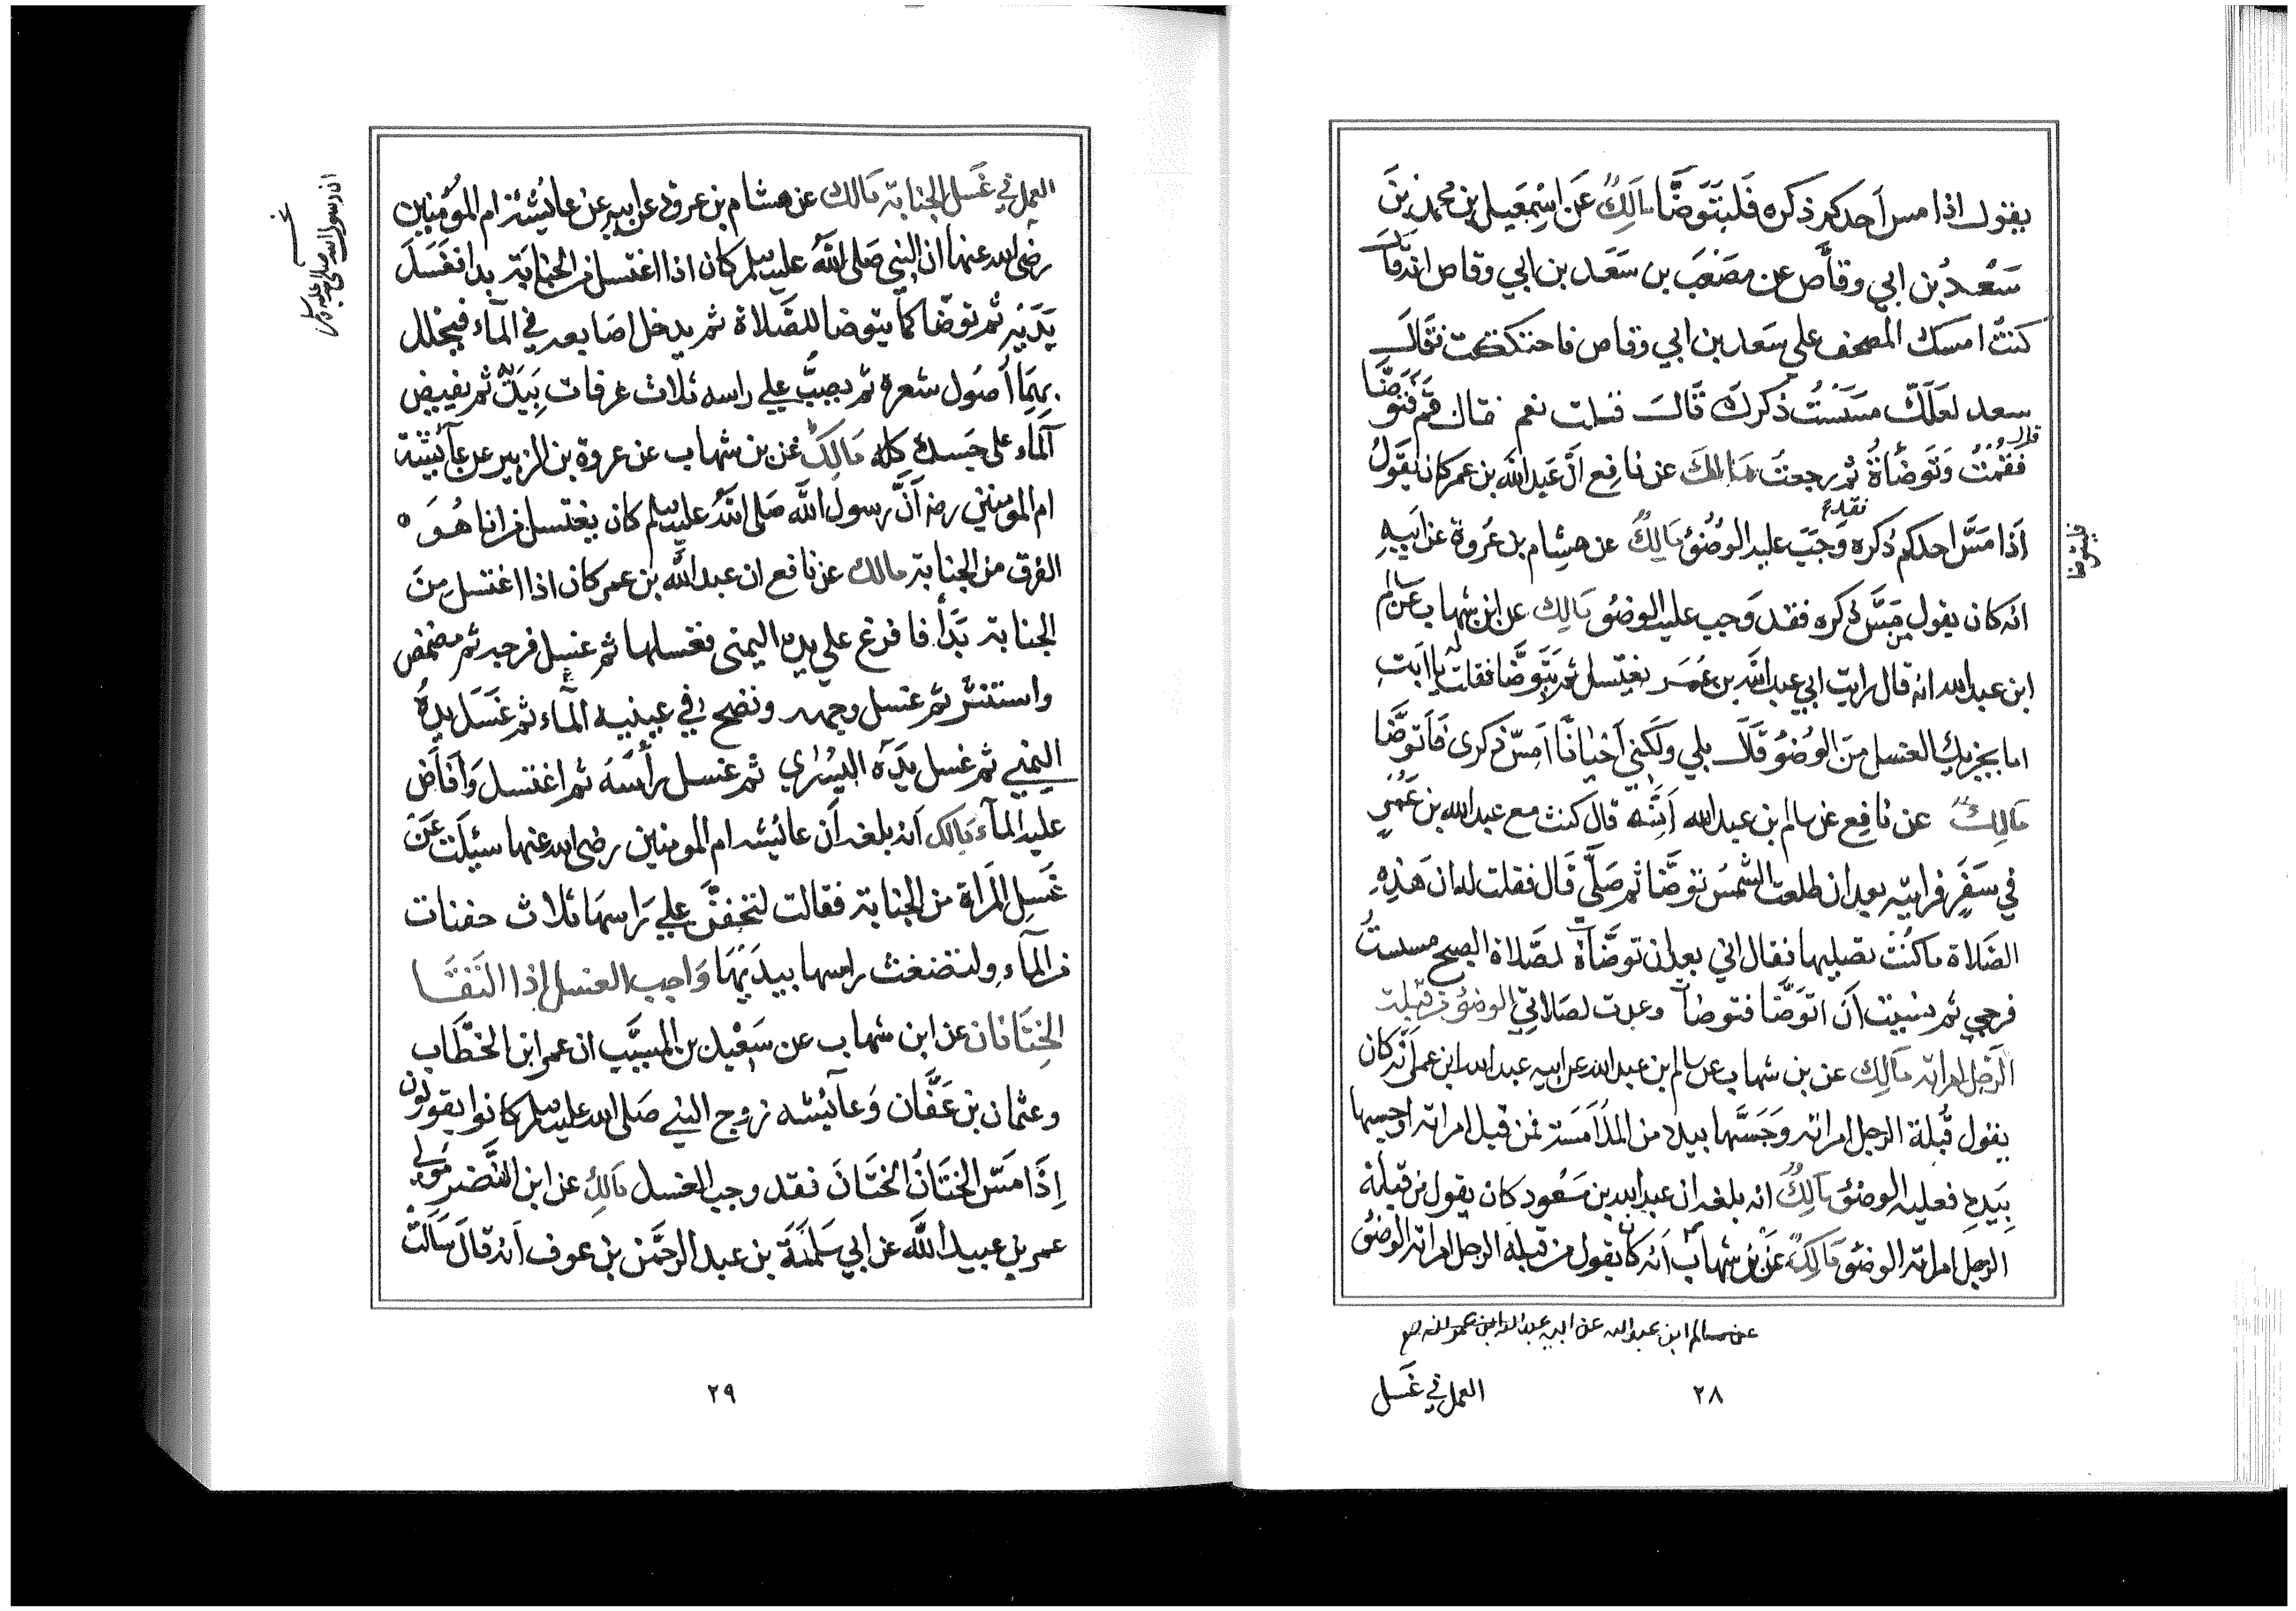 يقول اذا مس احدكم ذكره فليتوضا مالك عن اسمعيل بن محمد بن
سعد بن ابي وقاص عن مصعب بن سعد بن ابي وقاص انه قال
كنت امسك المصحف على سعد بن ابي وقاص فاحتككت فقال
سعد لعلك مسست ذكرك قال فقلت نعم فقال قم فتوضا
قال فقمت وتوضاة ثم رجعت مالك عن نافع ان عبد الله بن عمر كان يقول
اذا مس احدكم ذكره فقد وجب عليه الوضؤ مالك عن هشام بن عروة عن ابيه
انه كان يقول من مس ذكره فقد وجب عليه الوضؤ مالك عن ابن شهاب عن سالم
ابن عبد الله انه قال رايت ابي عبد الله بن عمر يغتسل ثم يتوضا فقلت له يا ابت
اما يجزيك الغسل من الوضؤ قال بلي ولكني احيانا امس ذكرى فاتوضا
مالك عن نافع عن سالم بن عبد الله انه قال كنت مع عبد الله بن عمر
في سفر فرايته بعد ان طلعت الشمس توضا ثم صلى قال فقلت له ان هذه
الصلاة ما كنت تصليها فقال اني بعد ان توضاة لصلاة الصبح مسست
فرجي ثم نسيت ان اتوضا فتوضا وعدت لصلاتي الوضؤ من قبلة
الرجل امراته مالك عن بن شهاب عن سالم بن عبد الله عن ابيه عبد الله ابن عمر انه كان
يقول قبلة الرجل امراته وجسها بيده من الملامسة فمن قبل امراته او جسها
بيده فعليه الوضؤ مالك انه بلغه ان عبد الله بن مسعود كان يقول من قبلة
الرجل امراته الوضؤ مالك عن بن شهاب انه كان يقول من قبلة الرجل امراته الوضؤ
عن سالم ابن عبد الله عن ابيه عبد الله ابن عمر
العمل في غسل
٢٨
العمل في غسل الجنابة مالك عن هشام بن عروة عن ابيه عن عائشة ام المؤمنين
رضي الله عنها ان النبي صلى الله عليه وسلم كان اذا اغتسل من الجنابة بدا فغسل
يديه ثم توضا كما يتوضا للصلاة ثم يدخل اصابعه في المآء فيخلل
بهما اصول شعره ثم يصب علي راسه ثلاث غرفات بيديه ثم يفيض
المآء على جسده كله مالك عن بن شهاب عن عروة بن الزبير عن عآئشة
ام المومنين رضه ان رسول الله صلى الله عليه وسلم كان يغتسل من انا هو
الفرق من الجنابة مالك عن نافع ان عبد الله بن عمر كان اذا اغتسل من
الجنابة بدأ فافرغ علي يده اليمنى فغسلها ثم غسل فرجه ثم مضمض
واستنثر ثم غسل وجهه ونضح في عينيه المآء ثم غسل يده
اليمني ثم غسل يده اليسرى ثم غسل رأسه ثم اغتسل وافاض
عليه المآء مالك انه بلغه ان عائشه ام المومنين رضي الله عنها سئلت عن
غسل المراة من الجنابة فقالت لتحفن علي راسها ثلاث حفنات
من المآء ولتضغث راسها بيديها واجب الغسل اذا التقا
الختانان عن ابن شهاب عن سعيد بن المسيب ان عمر ابن الخطاب
وعثمان بن عفان وعآئشه زوج النبي صلى الله عليه وسلم كانوا يقولون
اذا مس الختان الختان فقد وجب الغسل مالك عن ابن النضر مولي
عمر بن عبيد الله عن ابي سلمة بن عبد الرحمن بن عوف انه قال سالت
ان رسول الله صلى الله عليه وسلم
٢٩